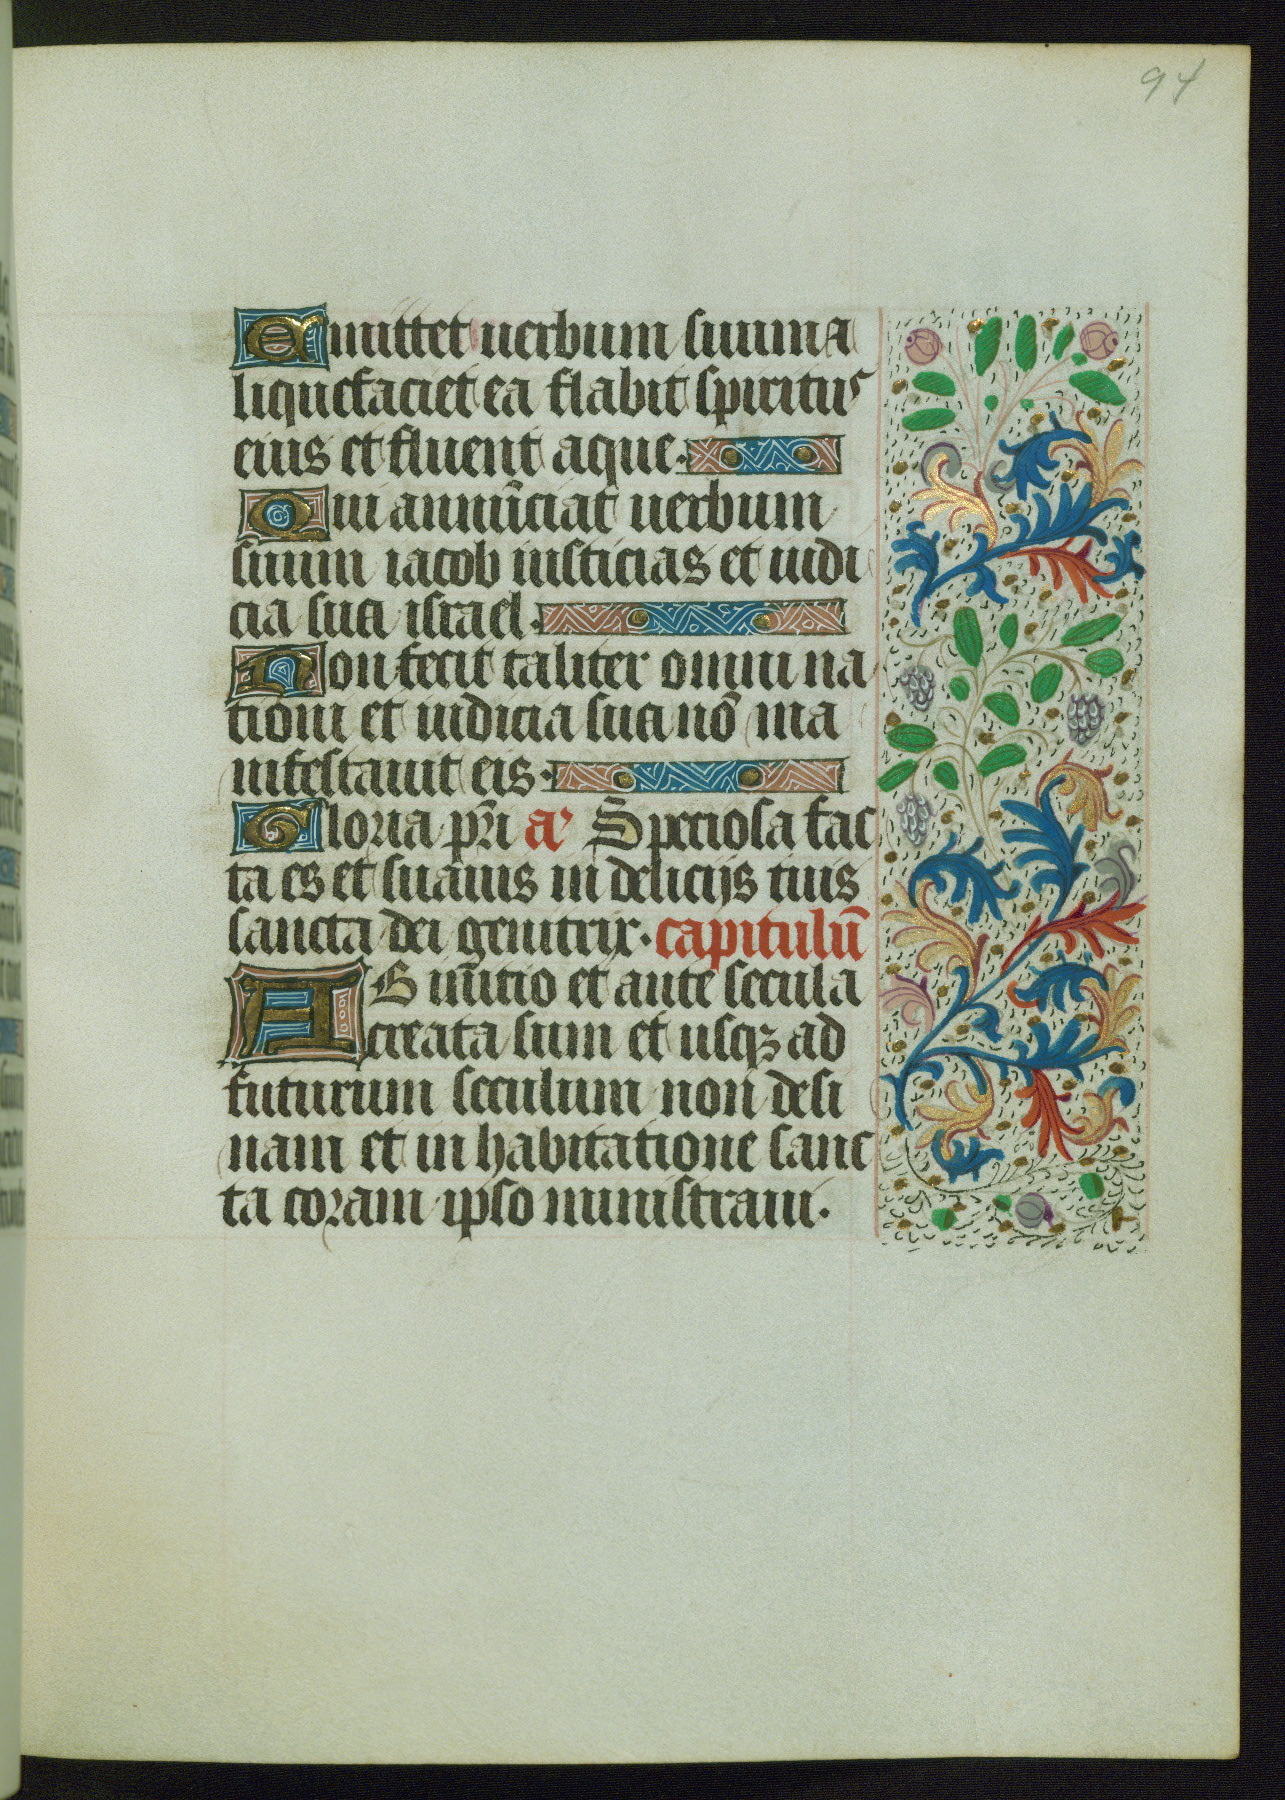 94
Emittet uerbum suum ⁊
liquefaciet ea flabit spiritus
eius et fluent aque.
Qui annūciat uerbum
suum iacob iusticias et iudi
cia sua israel.
Non fecit taliter omni na
tioni et iudicia sua nō ma
nifestauit eis.
Gloria pr̄i aͣ Speciosa fac
ta es et suauis in delicijs tuis
sancta dei genitrix. capitulū
AB inicio et ante secula
creata sum et usqꝫ ad
futurum seculum non desi
nam et in habitatione sanc
ta coram ipso ministraui.